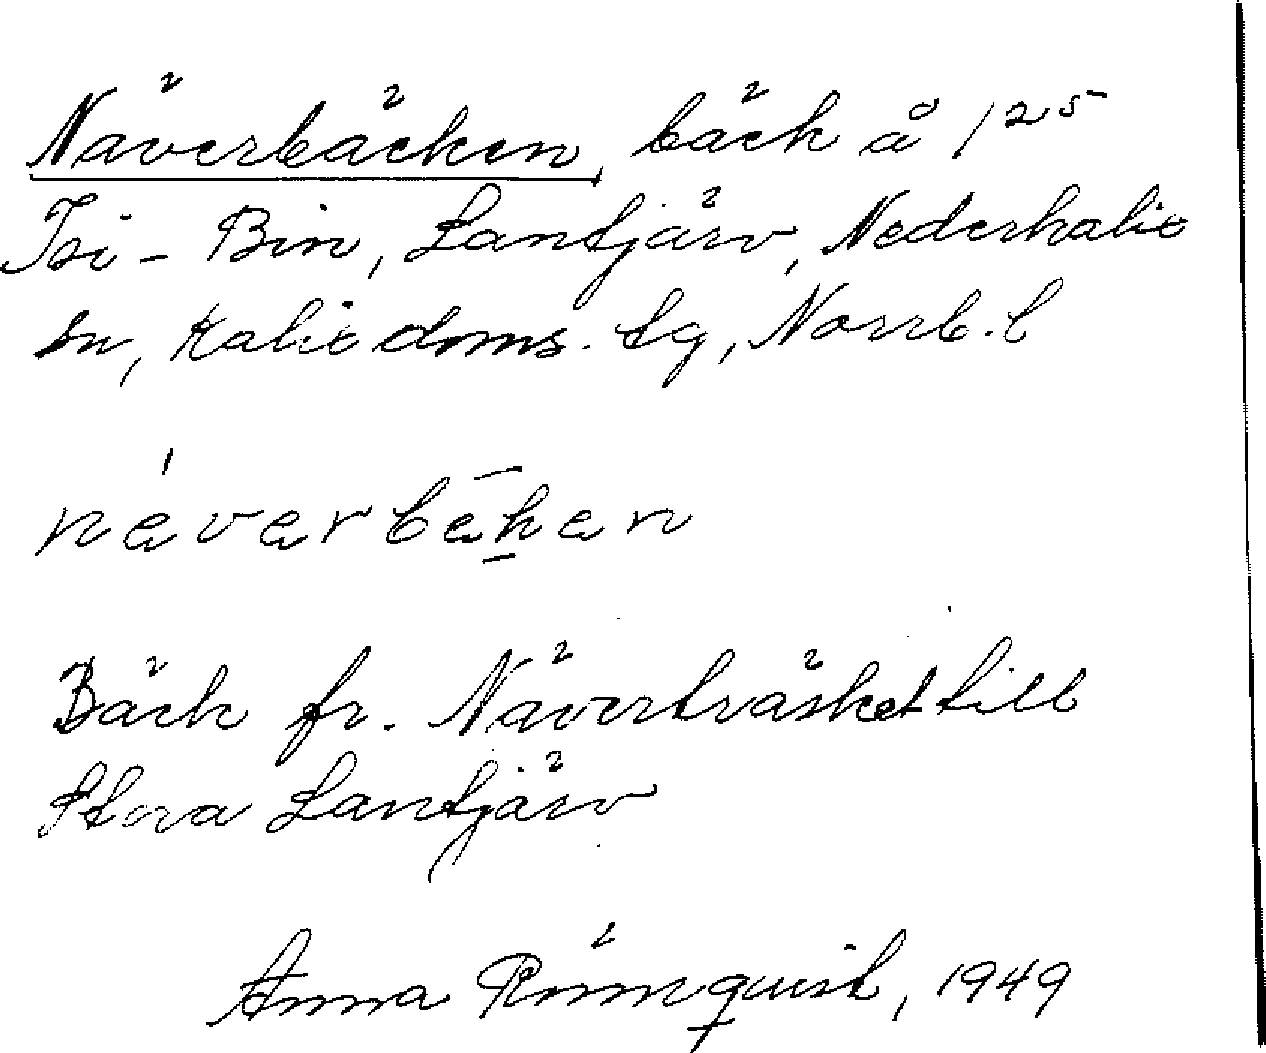 Näverbäcken, bäck å 125
Isi - Bin, Lantjärv, Nederkalix
sn, Kalix doms. tg, Norrb. l
néverbéken
Bäck fr. Näverträsket till
Stora Lantjärv
Anna Römquist, 1949